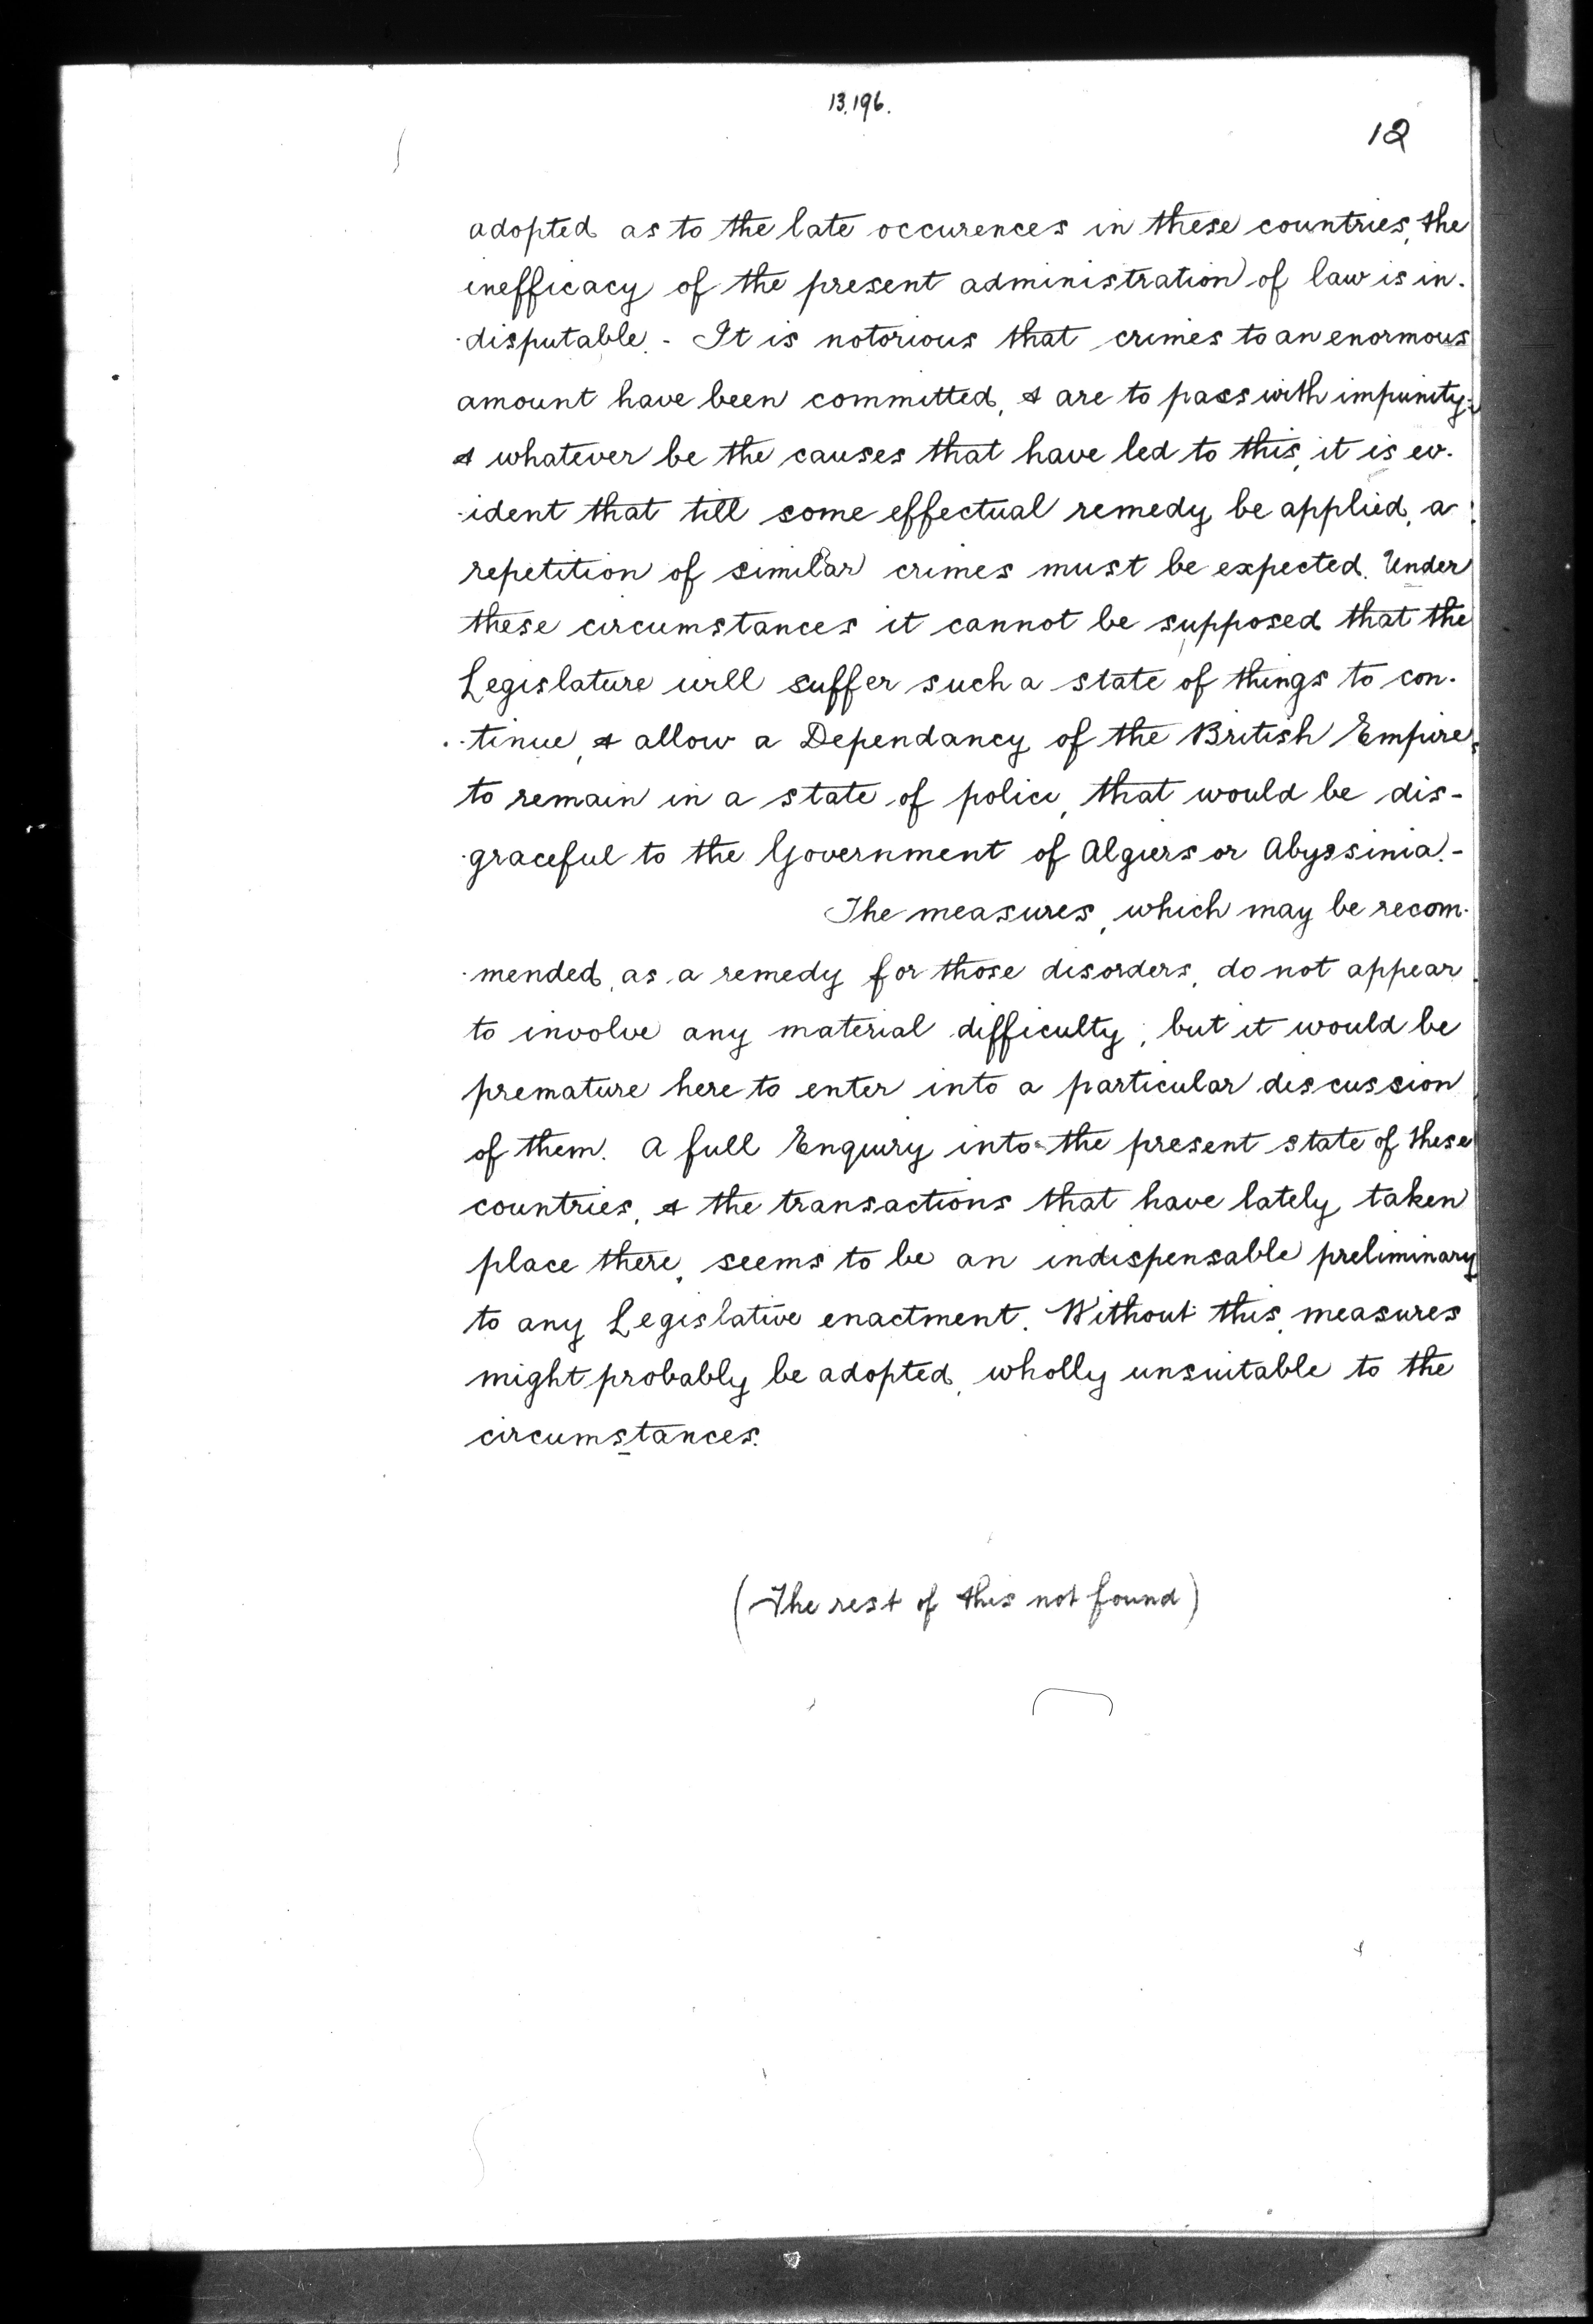 13.196.
12
adopted as to the late occurences in these countries, the
inefficacy of the present administration of law is in-
-disputable. - It is notorious that crimes to an enormous
amount have been committed, & are to pass with impunity;
& whatever be the causes that have led to this, it is ev-
-ident that till some effectual remedy be applied, a
repetition of similar crimes must be expected. Under
these circumstances it cannot be supposed that the
Legislature will suffer such a state of things to con-
-tinue, & allow a Dependancy of the British Empire,
to remain in a state of police, that would be dis-
-graceful to the Government of Algiers or Abyssinia. -
The measures, which may be recom-
-mended, as a remedy for those disorders, do not appear
to involve any material difficulty; but it would be
premature here to enter into a particular discussion
of them. A full Enquiry into the present state of these
countries, & the transactions that have lately taken
place there, seems to be an indispensable preliminary
to any Legislative enactment. Without this, measures
might probably be adopted, wholly unsuitable to the
circumstances.
(The rest of this not found)